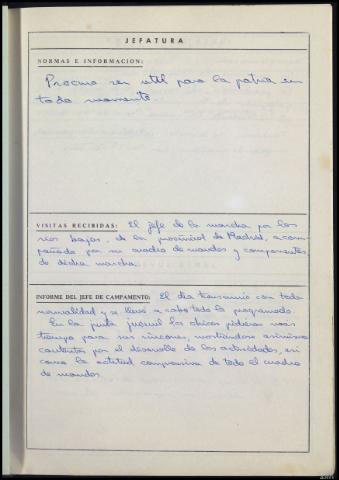 JEFATURA
NORMAS E INFORMACION:
Procura ser util para la patria en
todo momento.
VISITAS RECIBIDAS: El jefe de la marcha por los
rios bajos, de la provincial de Madrid, acom
pañado por su cuadro de mandos y componentes
de dicha marcha.
INFORME DEL JEFE DE CAMPAMENTO: El dia transcurrio con toda
normalidad y se llevó a cabo todo lo programado.
En la junta juvenil los chicos pidieron mas
tiempo para sus rincones, mostrandose asimismo
contentos por el desarrollo de las actividades, asi
como la actitud comprensiva de todo el cuadro
de mandos.